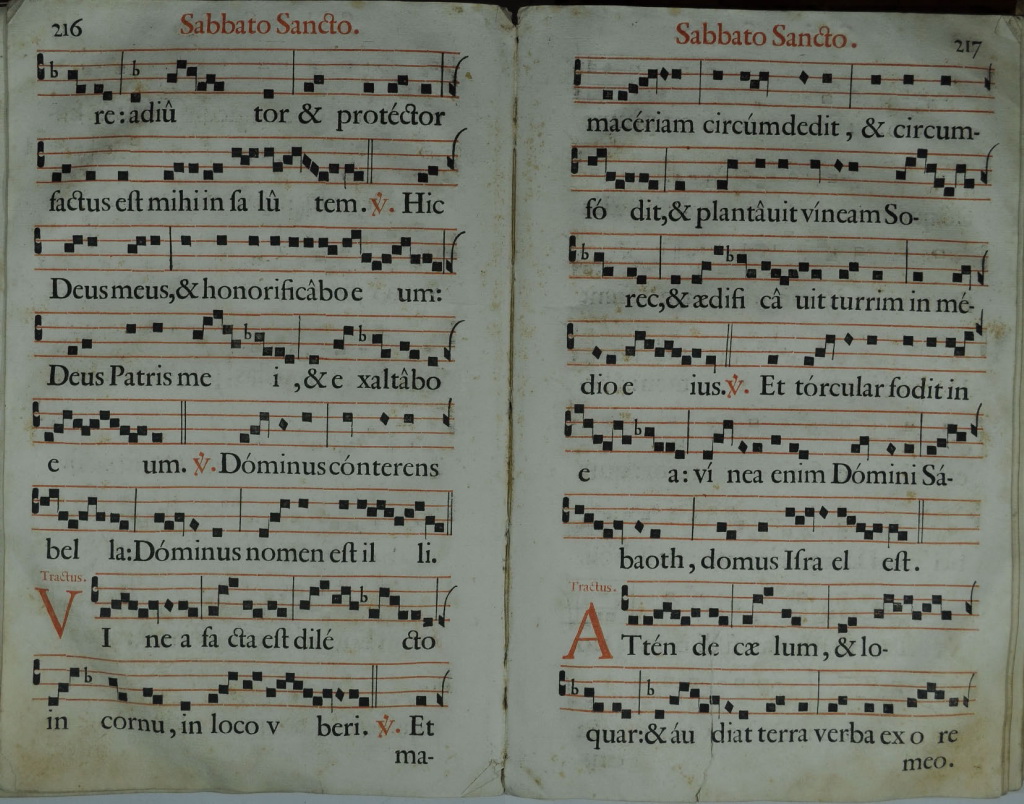 216
Sabbato Sancto.
re: adiû tor & protéctor
factus est mihi in sa lû tem. ℣. Hic
Deus meus, & honorificâbo e um:
Deus Patris me i, & e xaltâbo
e um. ℣. Dóminus cónterens
bel la: Dóminus nomen est il li.
Tractus.
VI ne a fa cta est dilé cto
in cornu, in loco v beri. ℣. Et
ma-
Sabbato Sancto.
217
macériam circúmdedit, & circum-
fó dit, & plantâuit víneam So-
rec, & ædifi câ uit turrim in mé-
dio e ius. ℣. Et tórcular fodit in
e a: ví nea enim Dómini Sá-
baoth, domus Isra el est.
Tractus.
ATtén de cæ lum, & lo-
quar: & áu diat terra verba ex o re
meo.